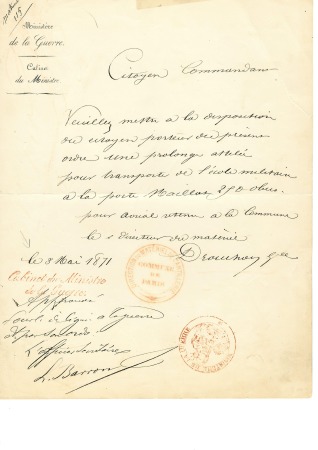 Ministère
de la Guerre.
Cabinet
du Ministre
Citoyen Commandant
Veuillez mettre à la disposition
du citoyen porteur du présent
ordre une prolonge attelée
pour transporter de l'école militaire
à la porte Maillot 250 obus.
pour
à la Commune
le Directeur du matériel
le 8 Mai 1871
Cabinet du Ministre
de la Guerre.
COMMUNE
DE
PARIS
Approuvé
à la guerre
et par son ordre
L'officier
L. Barron